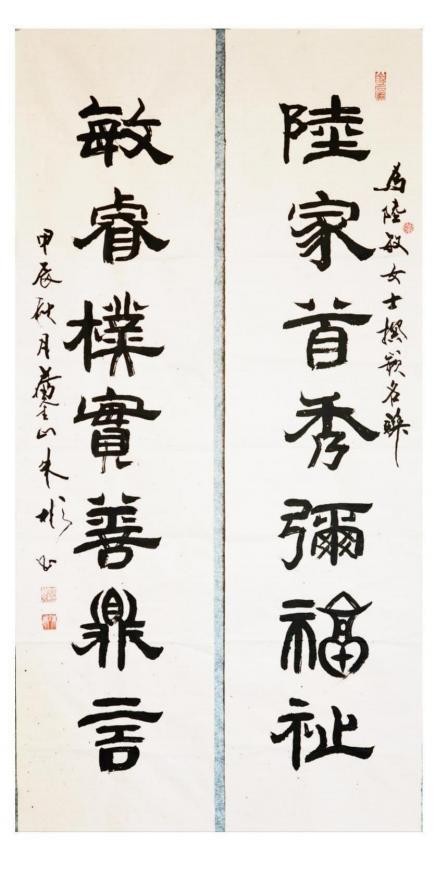 為陸敏女士撰嵌名聯
陸家首秀彌福祉
敏睿樸實善鼎言
甲辰秋月黃山朱彬書